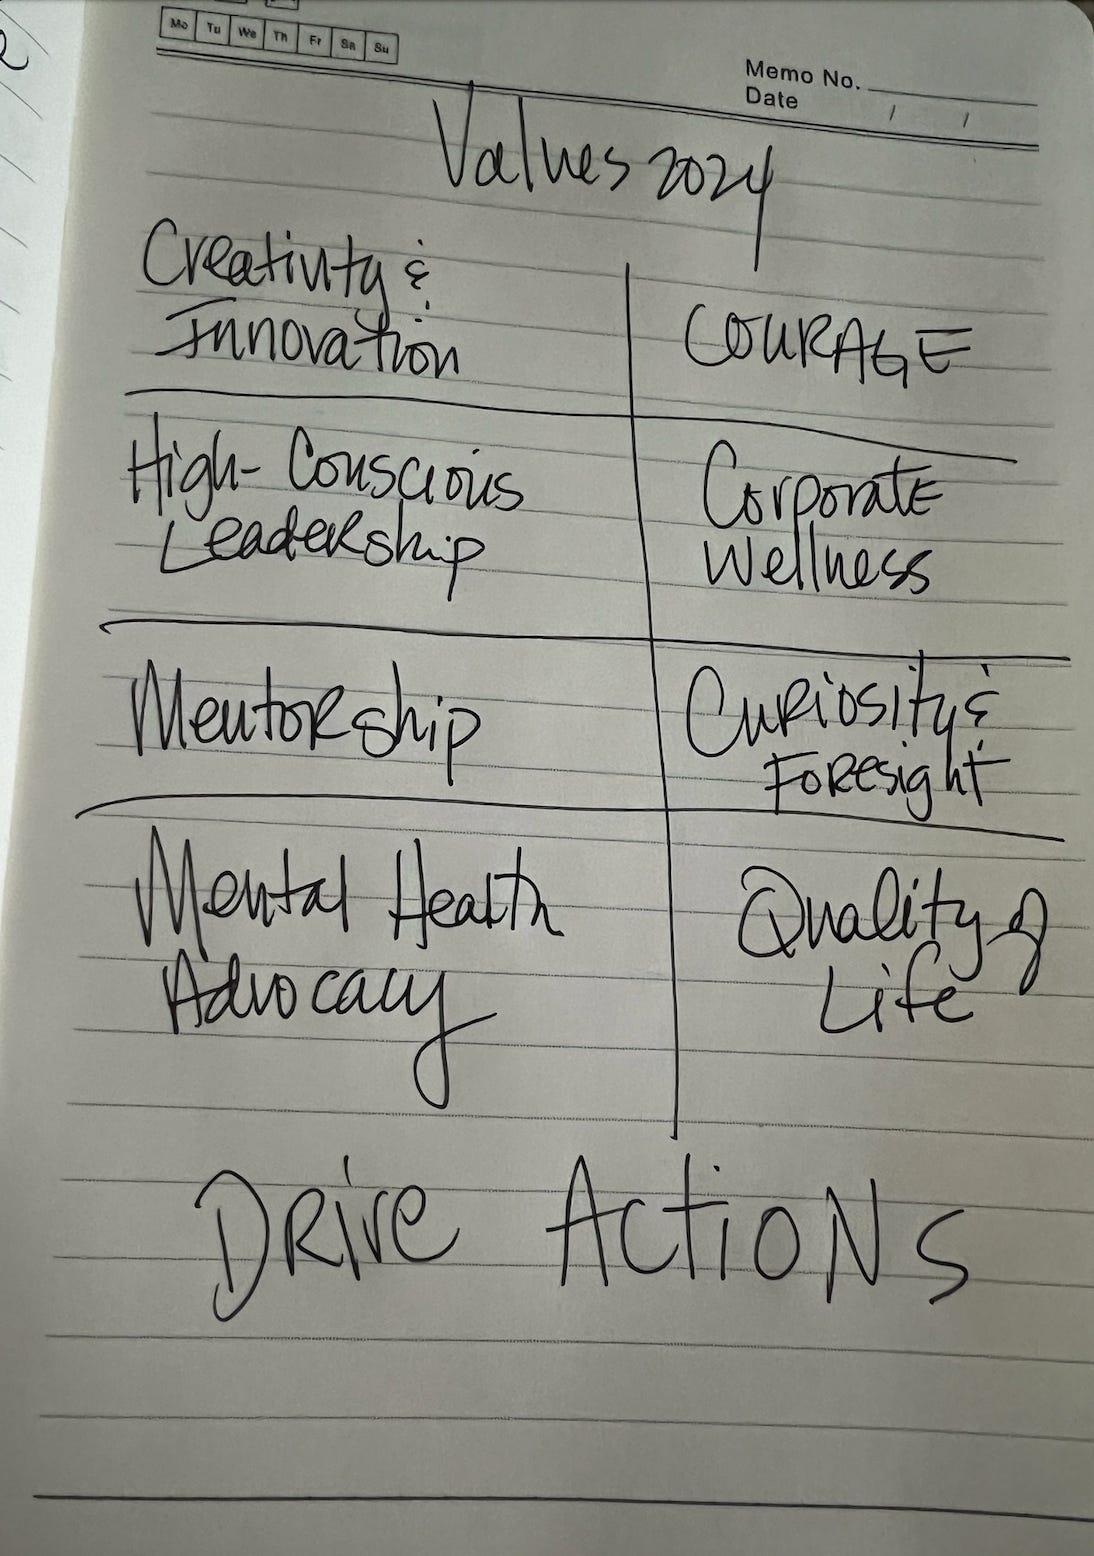 Mo Tu We Th Fr Sa Su
Memo No.
Date / /
Values 2024
Creativity &
Innovation
COURAGE
High-Conscious
Leadership
Corporate
Wellness
Mentorship
Curiosity &
Foresight
Mental Health
Advocacy
Quality of
Life
DRive ActioNs